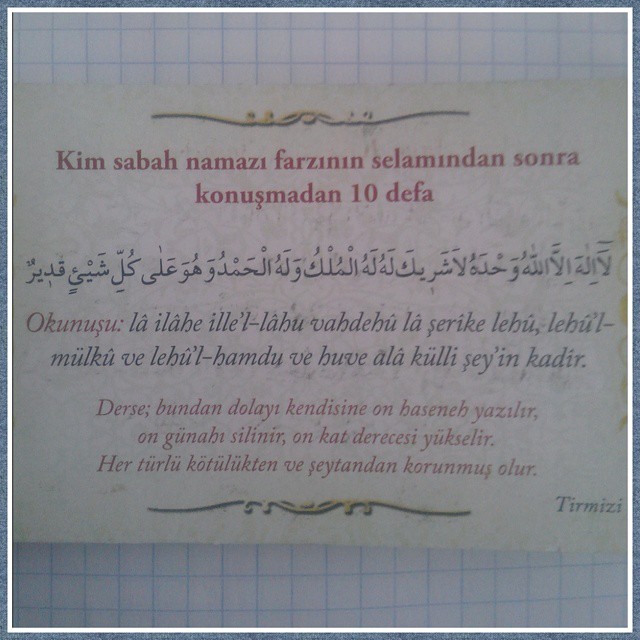 Kim sabah namazı farzının selamından sonra
konuşmadan 10 defa
لَٓا اِلٰهَ اِلَّا اللّٰهُ وَحْدَهُ لَا شَرِيكَ لَهُ لَهُ الْمُلْكُ وَلَهُ الْحَمْدُ وَهُوَ عَلٰى كُلِّ شَيْئٍ قَدِيرٌ
Okunuşu: lâ ilâhe ille'l-lâhu vahdehû lâ şerike lehû, lehû'l-
mülkû ve lehû'l-hamdu ve huve alâ külli şey'in kadir.
Derse; bundan dolayı kendisine on haseneh yazılır,
on günahı silinir, on kat derecesi yükselir.
Her türlü kötülükten ve şeytandan korunmuş olur.
Tirmizi